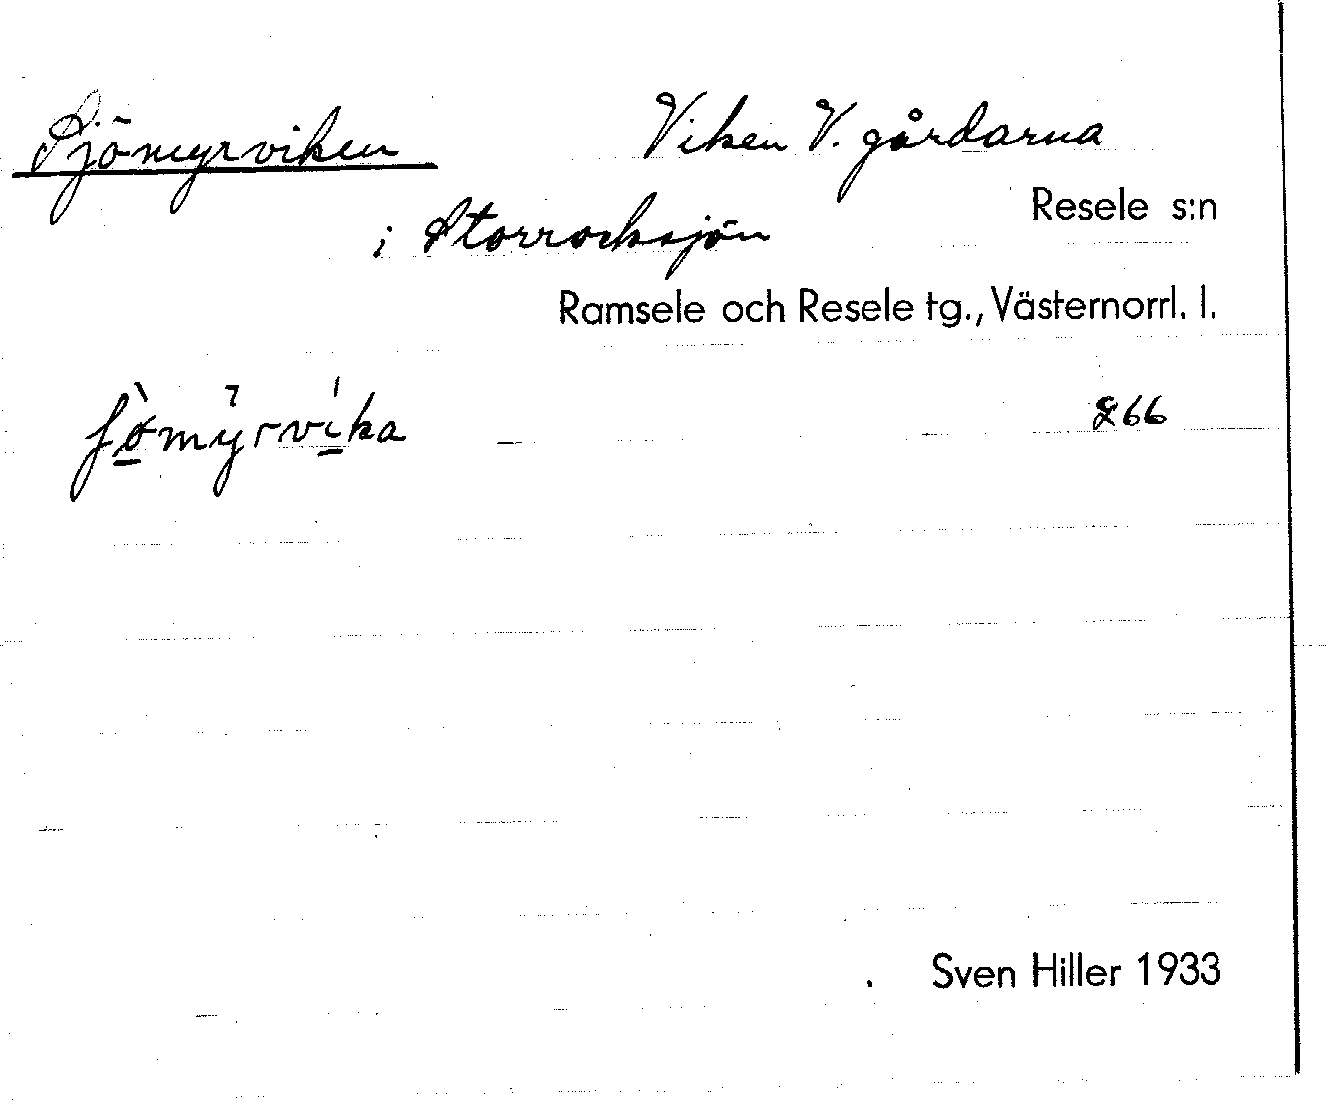 Sjömyrviken Viken V. gårdarna
i Storrocksjön Resele s:n
Ramsele och Resele tg., Västernorrl. l.
ʃòmy̆rvíka — 266
Sven Hiller 1933